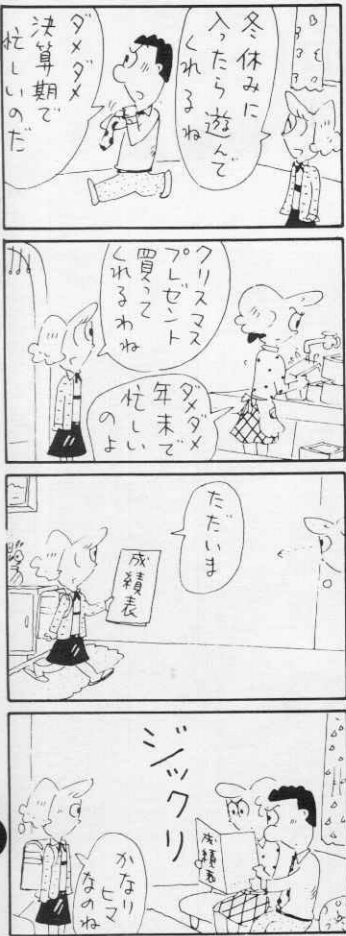 冬休みに
入ったら遊んで
くれるね
ダメダメ
決算期で
忙しいのだ
クリスマス
プレゼント
買って
くれるわね
ダメダメ
年末で
忙しい
のよ
ただいま
成績表
ジックリ
成績表
かなり
ヒマ
なのね